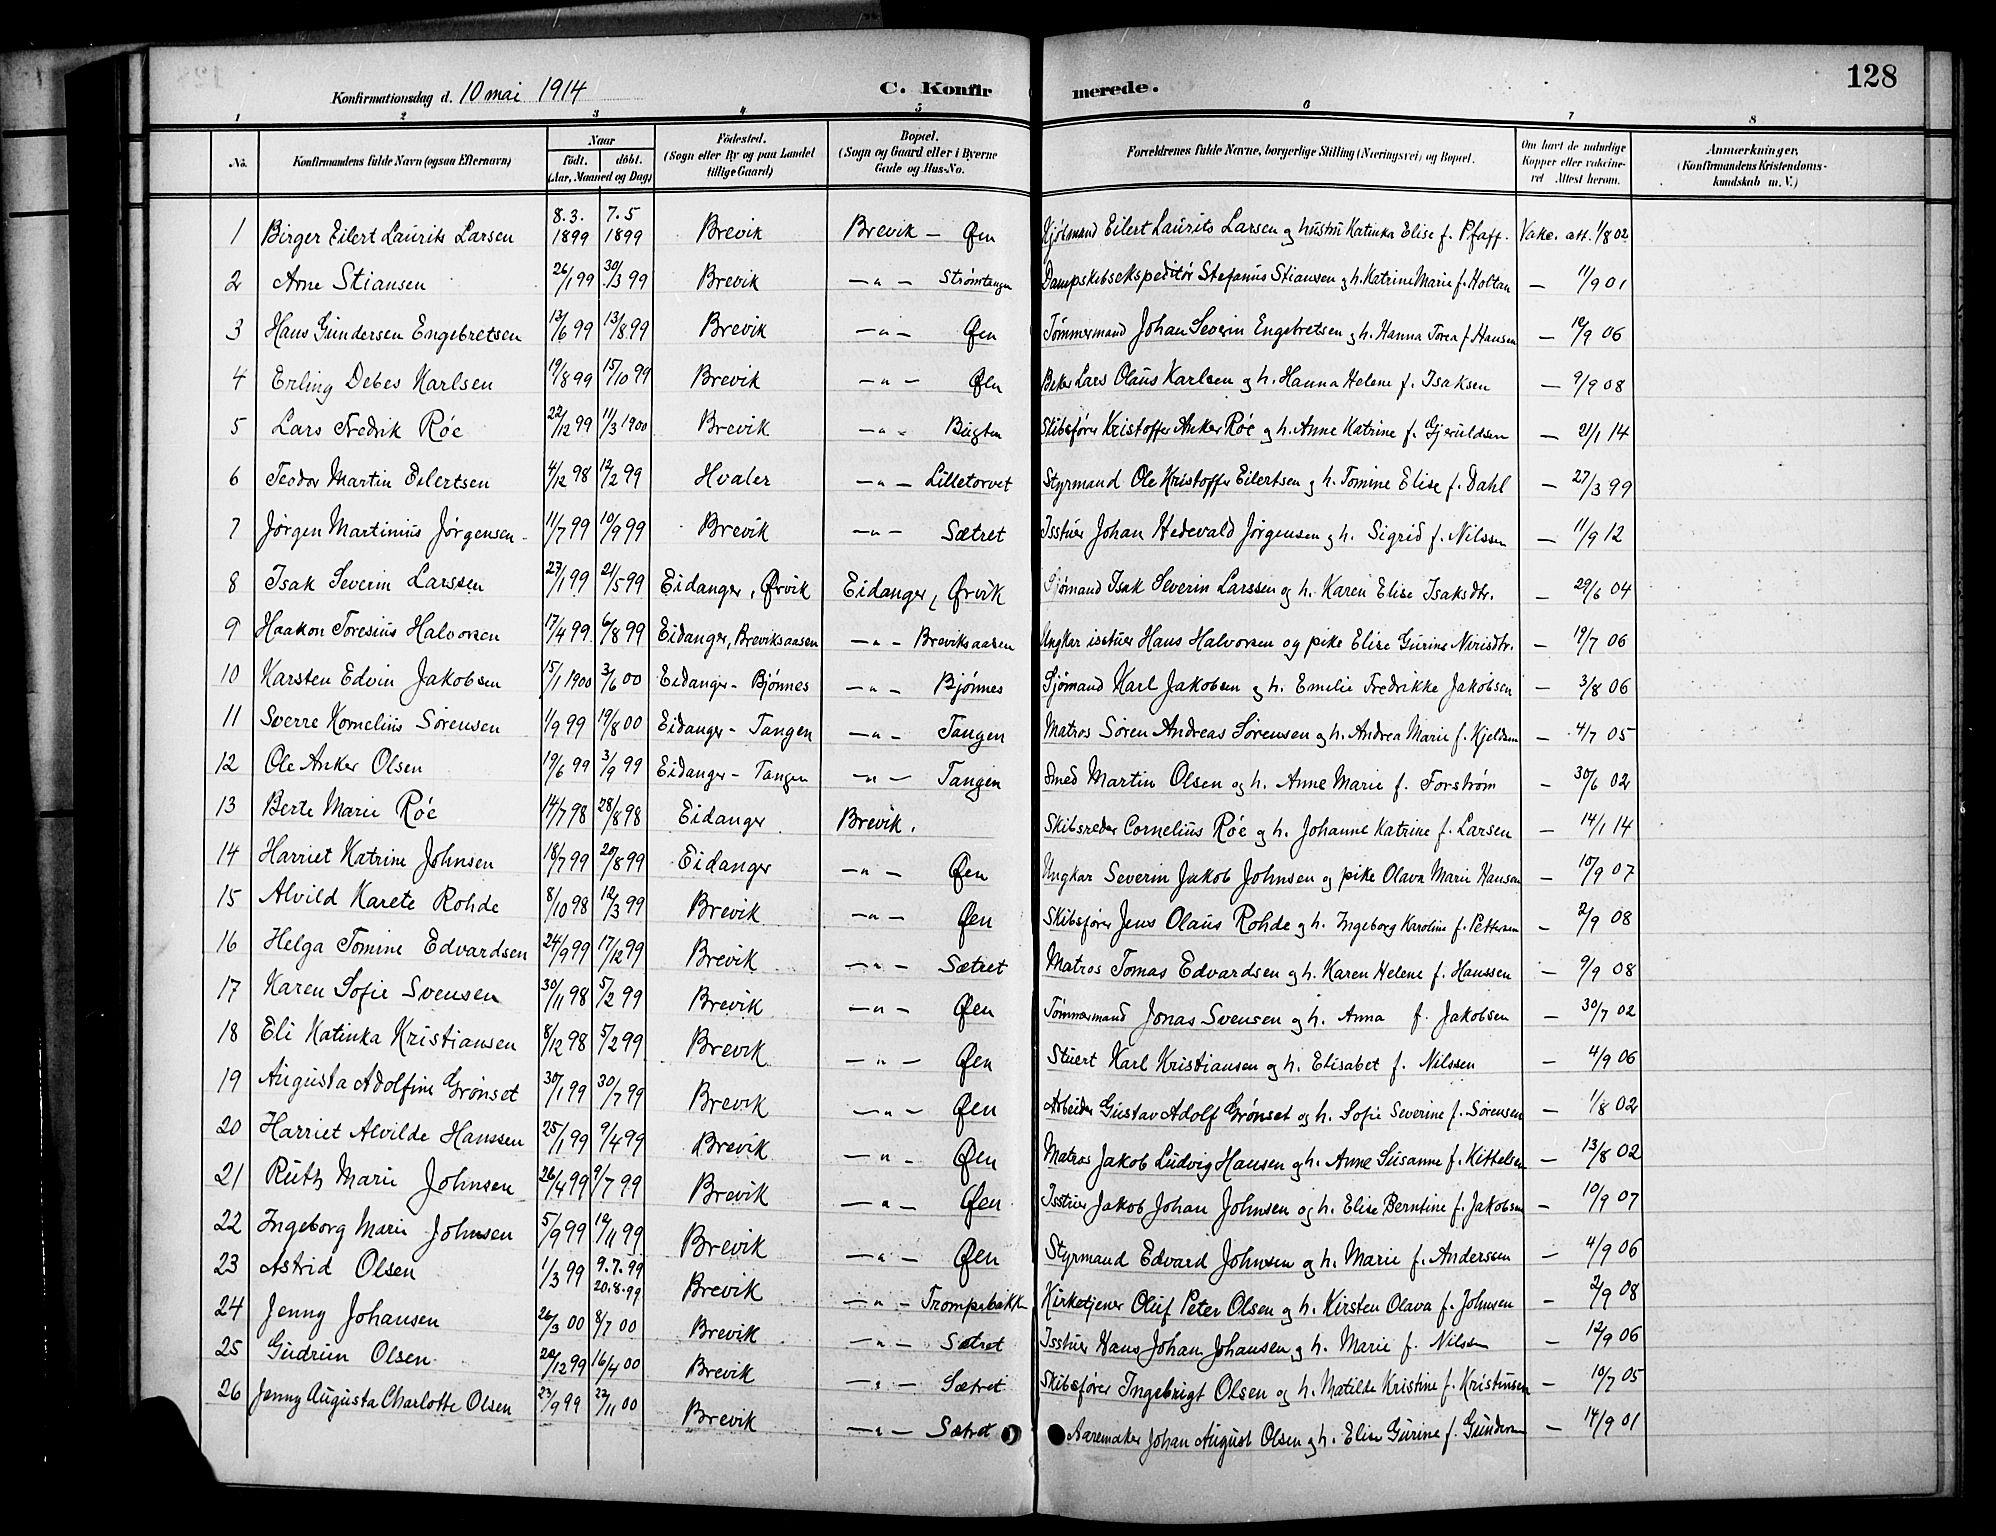 Konfirmationsdag d. 10 mai 1914 C. Konfirmerede. 128
1 2 3 4 5 6 7 8
No. Konfirmandens fulde Navn (ogsaa Efternavn) Naar Födt. döbt. (Aar, Maaned og Dag) Födested. (Sogn eller By og paa Landet tillige Gaard) Bopæl. (Sogn og Gaard eller i Byerne Gade og Hus-No. Forældrenes fulde Navne, borgerlige Stilling (Næringsvei) og Bopæl. Om havt de naturlige Kopper eller vakcineret Attest herom. Anmærkninger. (Konfirmandens Kristendomskundskab m. V.)
1 Birger Eilert Laurits Larsen 8.3. 1899 7.5 1899 Brevik Brevik - Øen Kjøbmand Eilert Laurits Larsen og hustru Katinka Elise f. Pfaff. Vakc. att. 1/8 02
2 Arne Stiansen 26/1 99 30/3 99 Brevik — " — Strømtangen Dampskibsekspeditør Stefanus Stianssen og h. Katrine Marie f. Holtan — 11/9 01
3 Hans Gundersen Engebretsen 12/6 99 13/8 99 Brevik — " — Øen Tømmermand Johan Severin Engebretsen og h. Hanna Torea f. Hansen — 12/9 06
4 Erling Debes Karlsen 19/8 99 15/10 99 Brevik — " — Øen Beker Lars Olaus Karlsen og h. Hanna Helene f. Isaksen — 9/9 08
5 Lars Fredrik Röe 22/12 99 11/3 1900 Brevik — " — Bugten Skibsfører Kristoffer Anker Röe og h. Anne Katrine f. Gjeruldsen — 21/1 14
6 Teodor Martin Eilertsen 4/12 98 12/2 99 Hvaler — " — Lilletorvet Styrmand Ole Kristoffer Eilertsen og h. Tomine Elise f. Dahl — 27/3 99
7 Jørgen Martinius Jørgensen 11/7 99 10/9 99 Brevik — " — Sætret Isstuer Johan Hedevald Jørgensen og h. Sigrid f. Nilssen — 11/9 12
8 Isak Severin Larssen 27/1 99 21/5 99 Eidanger, Ørvik Eidanger, Ørvik Sjømand Isak Severin Larssen og h. Karen Elise Isaksdtr. — 29/6 04
9 Haakon Toresius Halvorsen 17/4 99 6/8 99 Eidanger, Breviksaasen — " — Breviksaasen Ungkar isstuer Hans Halvorsen og pike Elise Gurine Nirisdtr. — 19/7 06
10 Karsten Edvin Jakobsen 15/1 1900 3/6 00 Eidanger - Bjönnes — " — Bjönnes Sjømand Karl Jakobsen og h. Emelie Fredrikke Jakobsen — 3/8 06
11 Sverre Kornelius Sørensen 1/9 99 19/8 00 Eidanger - Tangen — " — Tangen Matros Søren Andreas Sørensen og h. Andrea Marie f. Kjeldsen — 4/7 05
12 Ole Anker Olsen 19/6 99 3/9 99 Eidanger - Tangen — " — Tangen Smed Martin Olsen og h. Anne Marie f. Forstrøm — 30/6 02
13 Berte Marie Röe 14/7 98 28/8 98 Eidanger Brevik. Skibsreder Cornelius Röe og h. Johanne Katrine f. Larsen — 14/1 14
14 Harriet Katrine Johnsen 18/7 99 20/8 99 Eidanger — " — Øen Ungkar Severin Jakob Johnsen og pike Olava Marie Hansen — 10/9 07
15 Alvild Karete Rohde 8/10 98 12/3 99 Brevik — " — Øen Skibsfører Jens Olaus Rohde og h. Ingeborg Karoline f. Pettersen — 2/9 08
16 Helga Tomine Edvardsen 24/9 99 17/12 99 Brevik — " — Sætret Matros Tomas Edvardsen og h. Karen Helene f. Hanssen — 9/9 08
17 Karen Sofie Svensen 30/11 98 5/2 99 Brevik — " — Øen Tømmermand Jonas Svensen og h. Anna f. Jakobsen — 30/7 02
18 Eli Katinka Kristiansen 8/12 98 5/2 99 Brevik — " — Øen Stuert Karl Kristiansen og h. Elisabet f. Nilssen — 4/9 06
19 Augusta Adolfine Grønset 30/1 99 30/7 99 Brevik — " — Øen Arbeider Gustav Adolf Grønset og h. Sofie Severine f. Sørensen — 1/8 02
20 Harriet Alvilde Hanssen 25/1 99 9/4 99 Brevik — " — Øen Matros Jakob Ludvig Hansen og h. Anne Susanne f. Kittelsen — 13/8 02
21 Ruth Marie Johnsen 26/4 99 9/7 99 Brevik — " — Øen Isstuer Jakob Johan Johnsen og h. Elise Berntine f. Jakobsen — 10/9 07
22 Ingeborg Marie Johnsen 5/9 99 12/11 99 Brevik — " — Øen Styrmand Edvard Johnsen og h. Marie f. Anderssen — 4/9 06
23 Astrid Olsen 1/3 99 9.7.99 20.8.99 Brevik — " — Trompebakk Kirketjener Oluf Peter Olsen og h. Kirsten Olava f. Johnsen — 2/9 08
24 Jenny Johansen 26/3 00 8/7 00 Brevik — " — Sætret Isstuer Hans Johan Johansen og h. Marie f. Nilssen — 12/9 06
25 Gudrun Olsen 20/12 99 16/4 00 Brevik — " — Sætret Skibsfører Ingebrigt Olsen og h. Matilde Kristine f. Kristensen — 10/7 05
26 Jenny Augusta Charlotte Olsen 23/9 99 22/11 00 Brevik — " — Sætret Aaremaker Johan August Olsen og h. Elise Gurine f. Gundersen — 14/9 01